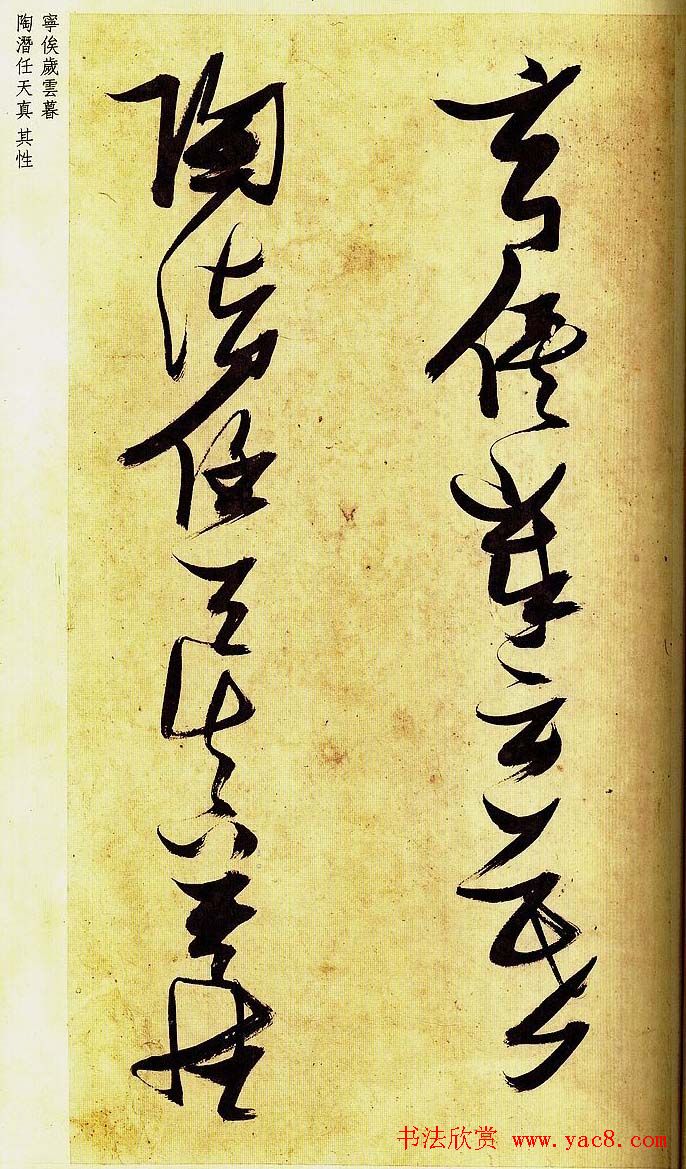 寧俟歲雲暮
陶潛任天真 其性
寧俟歲云暮
陶潛任天真其性
书法欣赏 www.yac8.com